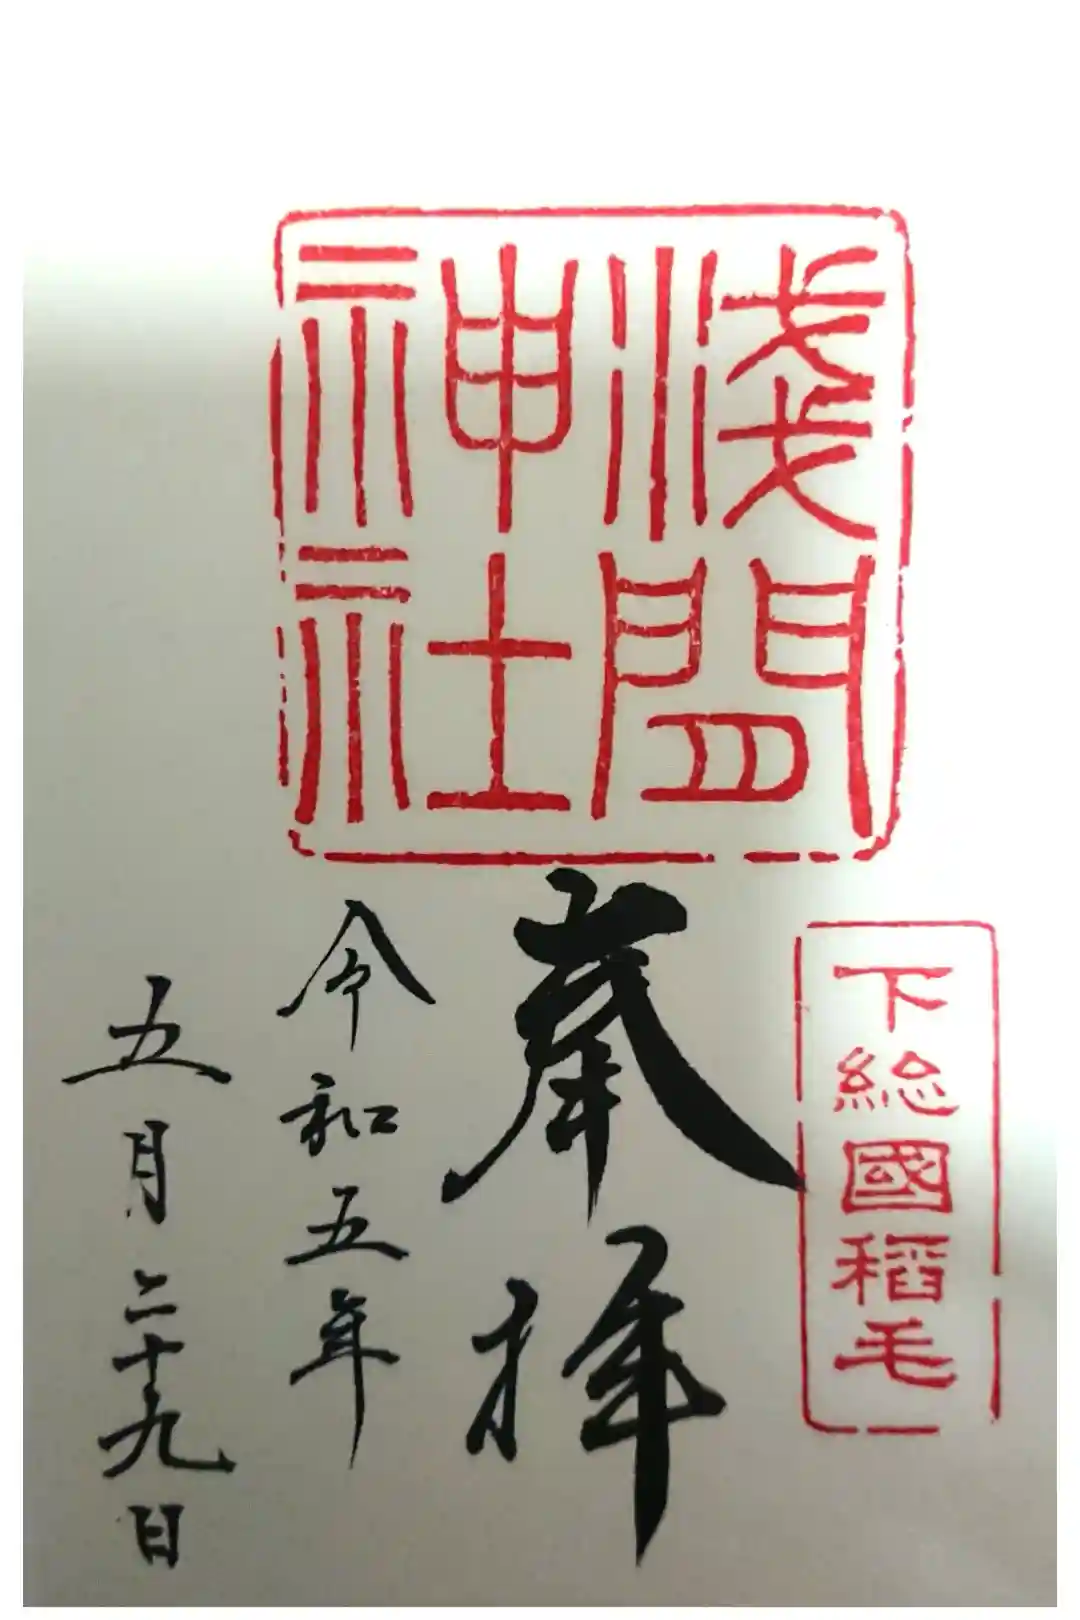 淺間
神社
下総國稲毛
奉拝
令和五年
五月二十九日